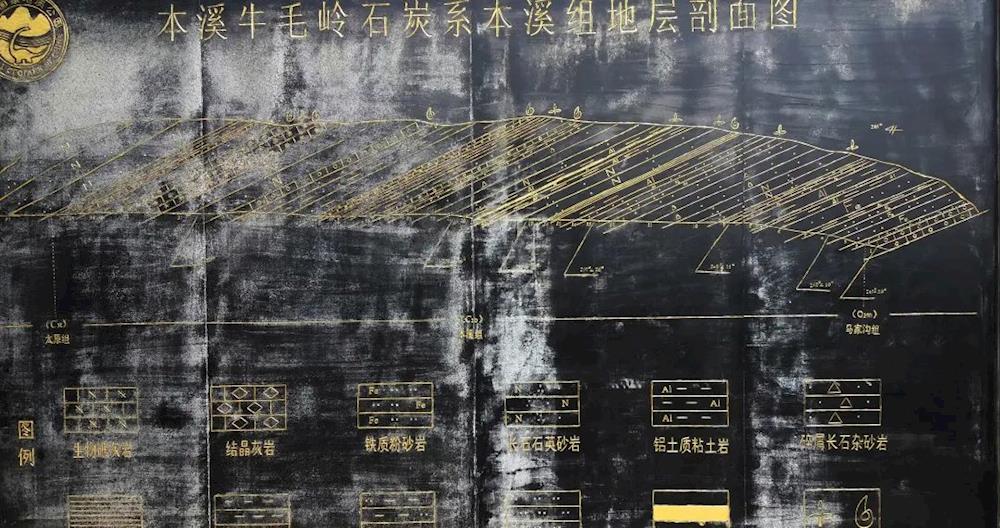 本溪牛毛岭石炭系本溪组地层剖面图
(C₃t)
太原组
(C₂b)
本溪组
(O₂m)
马家沟组
图例
生物碎灰岩
结晶灰岩
铁质粉砂岩
长石石英砂岩
铝土质粘土岩
碎屑长石杂砂岩
Fe
Fe
Fe
N
N
N
Al
Al
Al